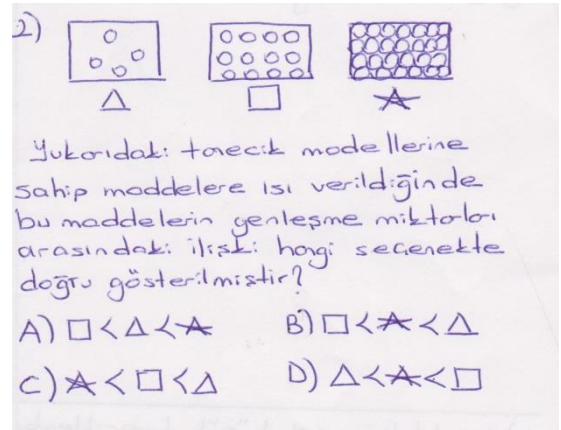 2)
△ □ ☆
Yukarıdaki tanecik modellerine
sahip maddelere ısı verildiğinde
bu maddelerin genleşme miktarları
arasındaki ilişki hangi seçenekte
doğru gösterilmiştir?
A) □<△<☆ B) □<☆<△
C) ☆<□<△ D) △<☆<□